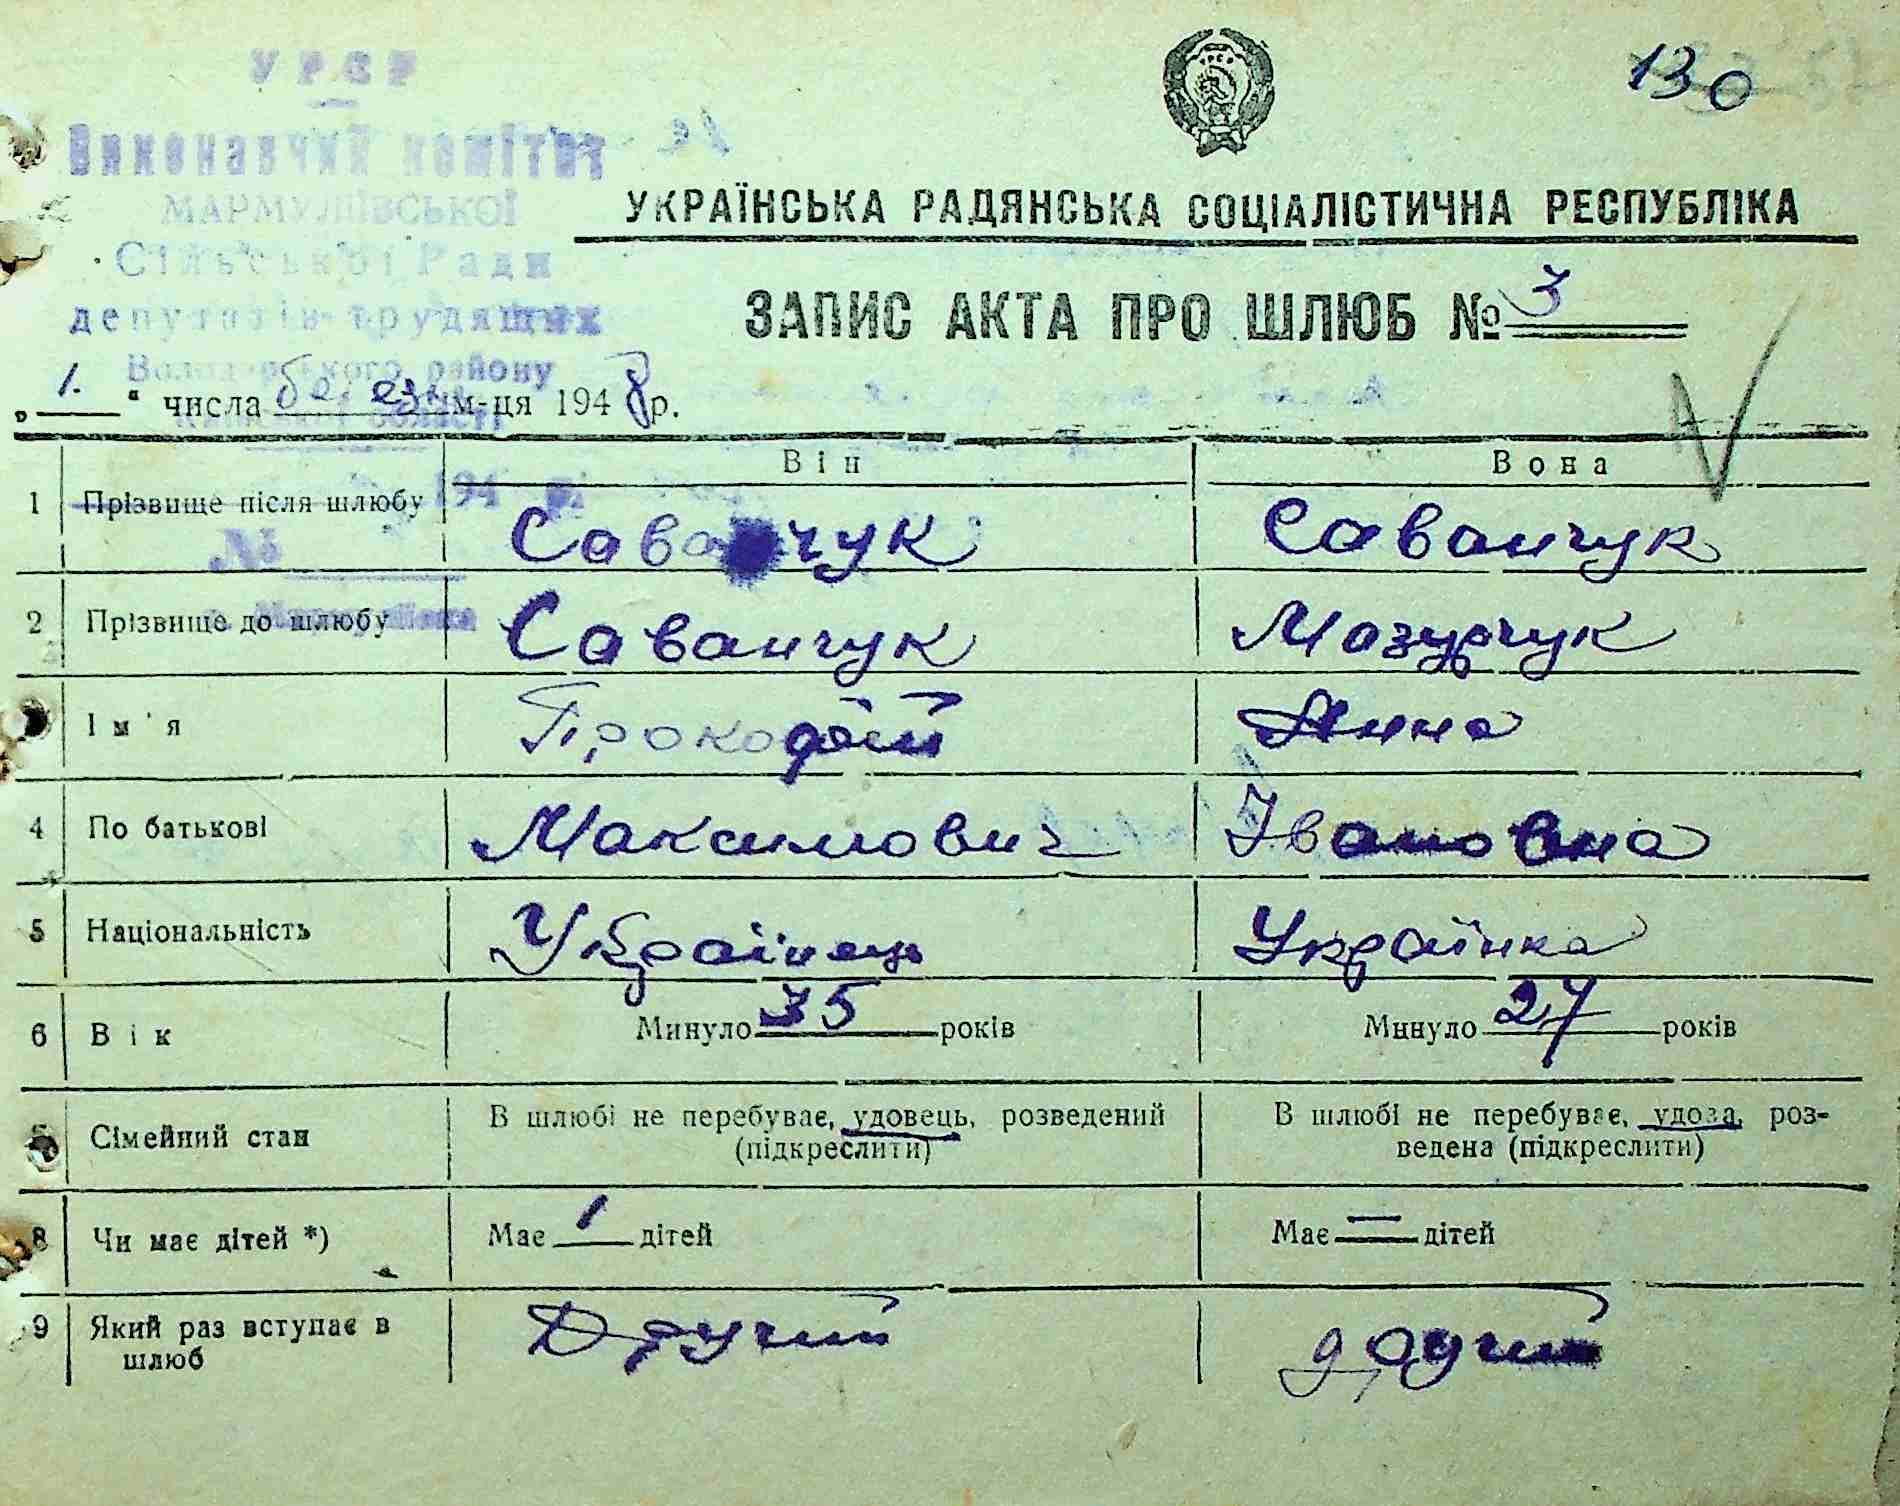 УРСР
Виконавчий комітет
МАРМУЛІЇВСЬКОЇ
Сільської Ради
депутатів трудящих
Володарського району
Київської області
194 р.
№
130
УКРАЇНСЬКА РАДЯНСЬКА СОЦІАЛІСТИЧНА РЕСПУБЛІКА
ЗАПИС АКТА ПРО ШЛЮБ № 3
„1.“ числа березня м-ця 1948 р.
Він Вона
1 Прізвище після шлюбу Саванчук Саванчук
2 Прізвище до шлюбу Саванчук Мазурчук
Ім'я Прокофій Анна
4 По батькові Максимович Івановна
5 Національність Українець Українка
6 Вік Минуло 35 років Минуло 27 років
Сімейний стан В шлюбі не перебуває, удовець, розведений (підкреслити) В шлюбі не перебуває, удова, роз-
ведена (підкреслити)
8 Чи має дітей *) Має 1 дітей Має — дітей
9 Який раз вступає в шлюб Другий другий